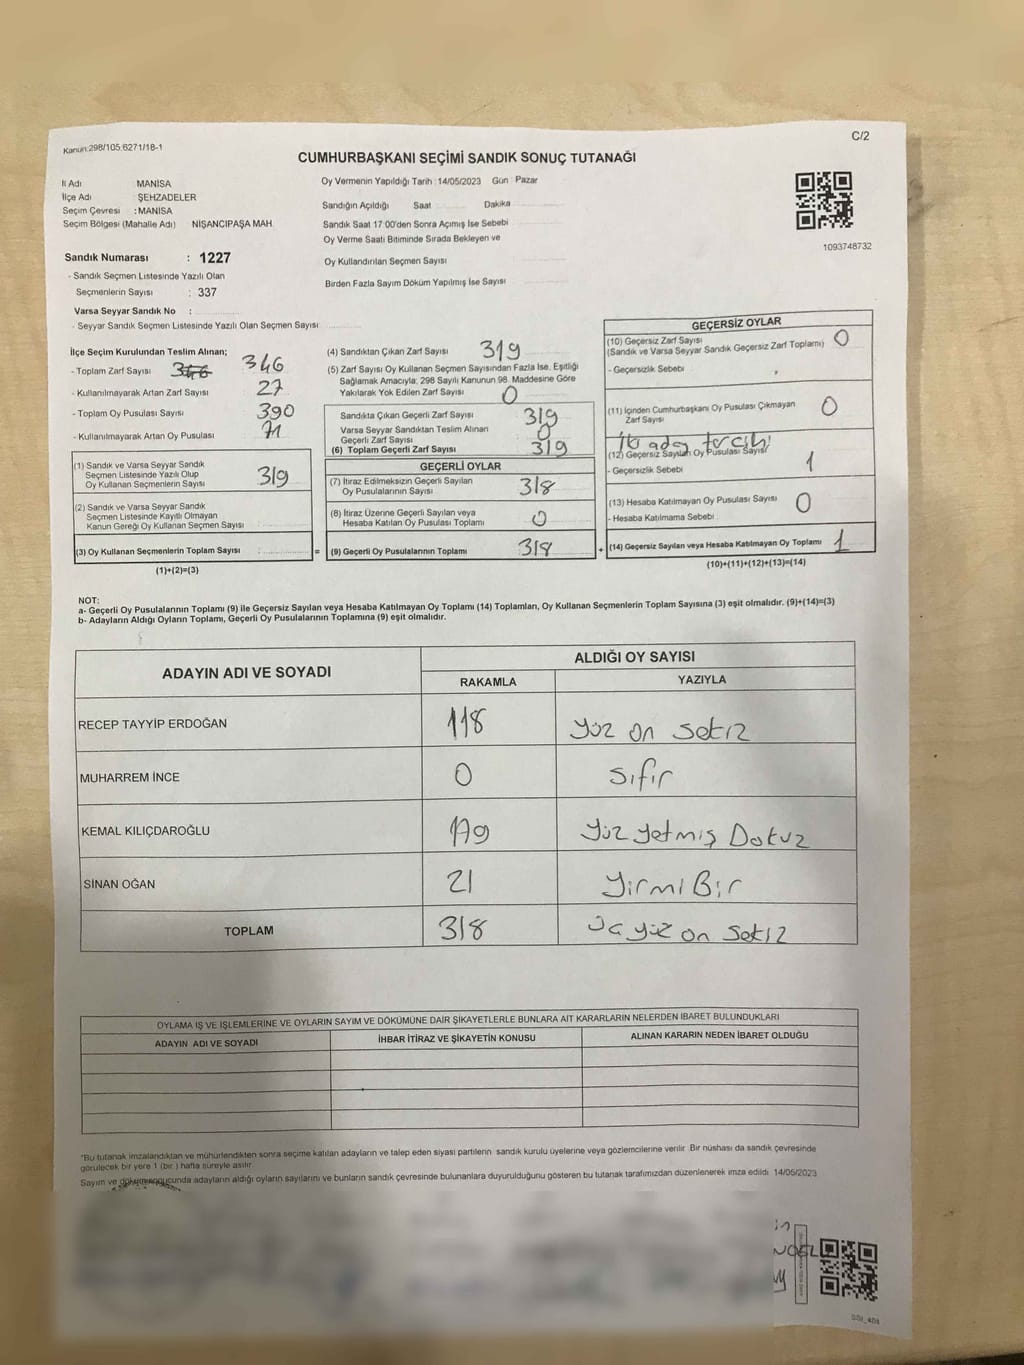 C/2
Kanun:298/105:6271/18-1
CUMHURBAŞKANI SEÇİMİ SANDIK SONUÇ TUTANAĞI
İl Adı MANİSA
İlçe Adı ŞEHZADELER
Seçim Çevresi : MANİSA
Seçim Bölgesi (Mahalle Adı) NİŞANCIPAŞA MAH.
Oy Vermenin Yapıldığı Tarih : 14/05/2023 Gün : Pazar
Sandığın Açıldığı Saat Dakika
Sandık Saat 17:00'den Sonra Açımış İse Sebebi
Oy Verme Saati Bitiminde Sırada Bekleyen ve
Oy Kullandırılan Seçmen Sayısı
Birden Fazla Sayım Döküm Yapılmış İse Sayısı
1093748732
Sandık Numarası : 1227
- Sandık Seçmen Listesinde Yazılı Olan
Seçmenlerin Sayısı : 337
Varsa Seyyar Sandık No :
- Seyyar Sandık Seçmen Listesinde Yazılı Olan Seçmen Sayısı
İlçe Seçim Kurulundan Teslim Alınan;
- Toplam Zarf Sayısı 346
- Kullanılmayarak Artan Zarf Sayısı 27
- Toplam Oy Pusulası Sayısı 390
- Kullanılmayarak Artan Oy Pusulası 71
(1) Sandık ve Varsa Seyyar Sandık
Seçmen Listesinde Yazılı Olup
Oy Kullanan Seçmenlerin Sayısı 319
(2) Sandık ve Varsa Seyyar Sandık
Seçmen Listesinde Kayıtlı Olmayan
Kanun Gereği Oy Kullanan Seçmen Sayısı
(3) Oy Kullanan Seçmenlerin Toplam Sayısı : =
(1)+(2)=(3)
(4) Sandıktan Çıkan Zarf Sayısı 319
(5) Zarf Sayısı Oy Kullanan Seçmen Sayısından Fazla İse, Eşitliği
Sağlamak Amacıyla; 298 Sayılı Kanunun 98. Maddesine Göre
Yakılarak Yok Edilen Zarf Sayısı 0
Sandıkta Çıkan Geçerli Zarf Sayısı 319
Varsa Seyyar Sandıktan Teslim Alınan
Geçerli Zarf Sayısı 0
(6) Toplam Geçerli Zarf Sayısı 319
GEÇERLİ OYLAR
(7) İtiraz Edilmeksizin Geçerli Sayılan
Oy Pusulalarının Sayısı 318
(8) İtiraz Üzerine Geçerli Sayılan veya
Hesaba Katılan Oy Pusulası Toplamı 0
(9) Geçerli Oy Pusulalarının Toplamı 318 +
GEÇERSİZ OYLAR
(10) Geçersiz Zarf Sayısı 0
(Sandık ve Varsa Seyyar Sandık Geçersiz Zarf Toplamı)
- Geçersizlik Sebebi
(11) İçinden Cumhurbaşkanı Oy Pusulası Çıkmayan
Zarf Sayısı 0
iki aday tercihi
(12) Geçersiz Sayılan Oy Pusulası Sayısı 1
- Geçersizlik Sebebi
(13) Hesaba Katılmayan Oy Pusulası Sayısı 0
- Hesaba Katılmama Sebebi
(14) Geçersiz Sayılan veya Hesaba Katılmayan Oy Toplamı 1
(10)+(11)+(12)+(13)=(14)
NOT:
a- Geçerli Oy Pusulalarının Toplamı (9) ile Geçersiz Sayılan veya Hesaba Katılmayan Oy Toplamı (14) Toplamları, Oy Kullanan Seçmenlerin Toplam Sayısına (3) eşit olmalıdır. (9)+(14)=(3)
b- Adayların Aldığı Oyların Toplamı, Geçerli Oy Pusulalarının Toplamına (9) eşit olmalıdır.
ADAYIN ADI VE SOYADI ALDIĞI OY SAYISI
RAKAMLA YAZIYLA
RECEP TAYYİP ERDOĞAN 118 yüz on sekiz
MUHARREM İNCE 0 sıfır
KEMAL KILIÇDAROĞLU 179 yüz yetmiş Dokuz
SİNAN OĞAN 21 YirmiBir
TOPLAM 318 üç yüz on sekiz
OYLAMA İŞ VE İŞLEMLERİNE VE OYLARIN SAYIM VE DÖKÜMÜNE DAİR ŞİKAYETLERLE BUNLARA AİT KARARLARIN NELERDEN İBARET BULUNDUKLARI
ADAYIN ADI VE SOYADI İHBAR İTİRAZ VE ŞİKAYETİN KONUSU ALINAN KARARIN NEDEN İBARET OLDUĞU
"Bu tutanak imzalandıktan ve mühürlendikten sonra seçime katılan adayların ve talep eden siyasi partilerin sandık kurulu üyelerine veya gözlemcilerine verilir. Bir nüshası da sandık çevresinde
görülecek bir yere 1 (bir ) hafta süreyle asılır.
Sayım ve dökümü sonucunda adayların aldığı oyların sayılarını ve bunların sandık çevresinde bulunanlara duyurulduğunu gösteren bu tutanak tarafımızdan düzenlenerek imza edildi. 14/05/2023